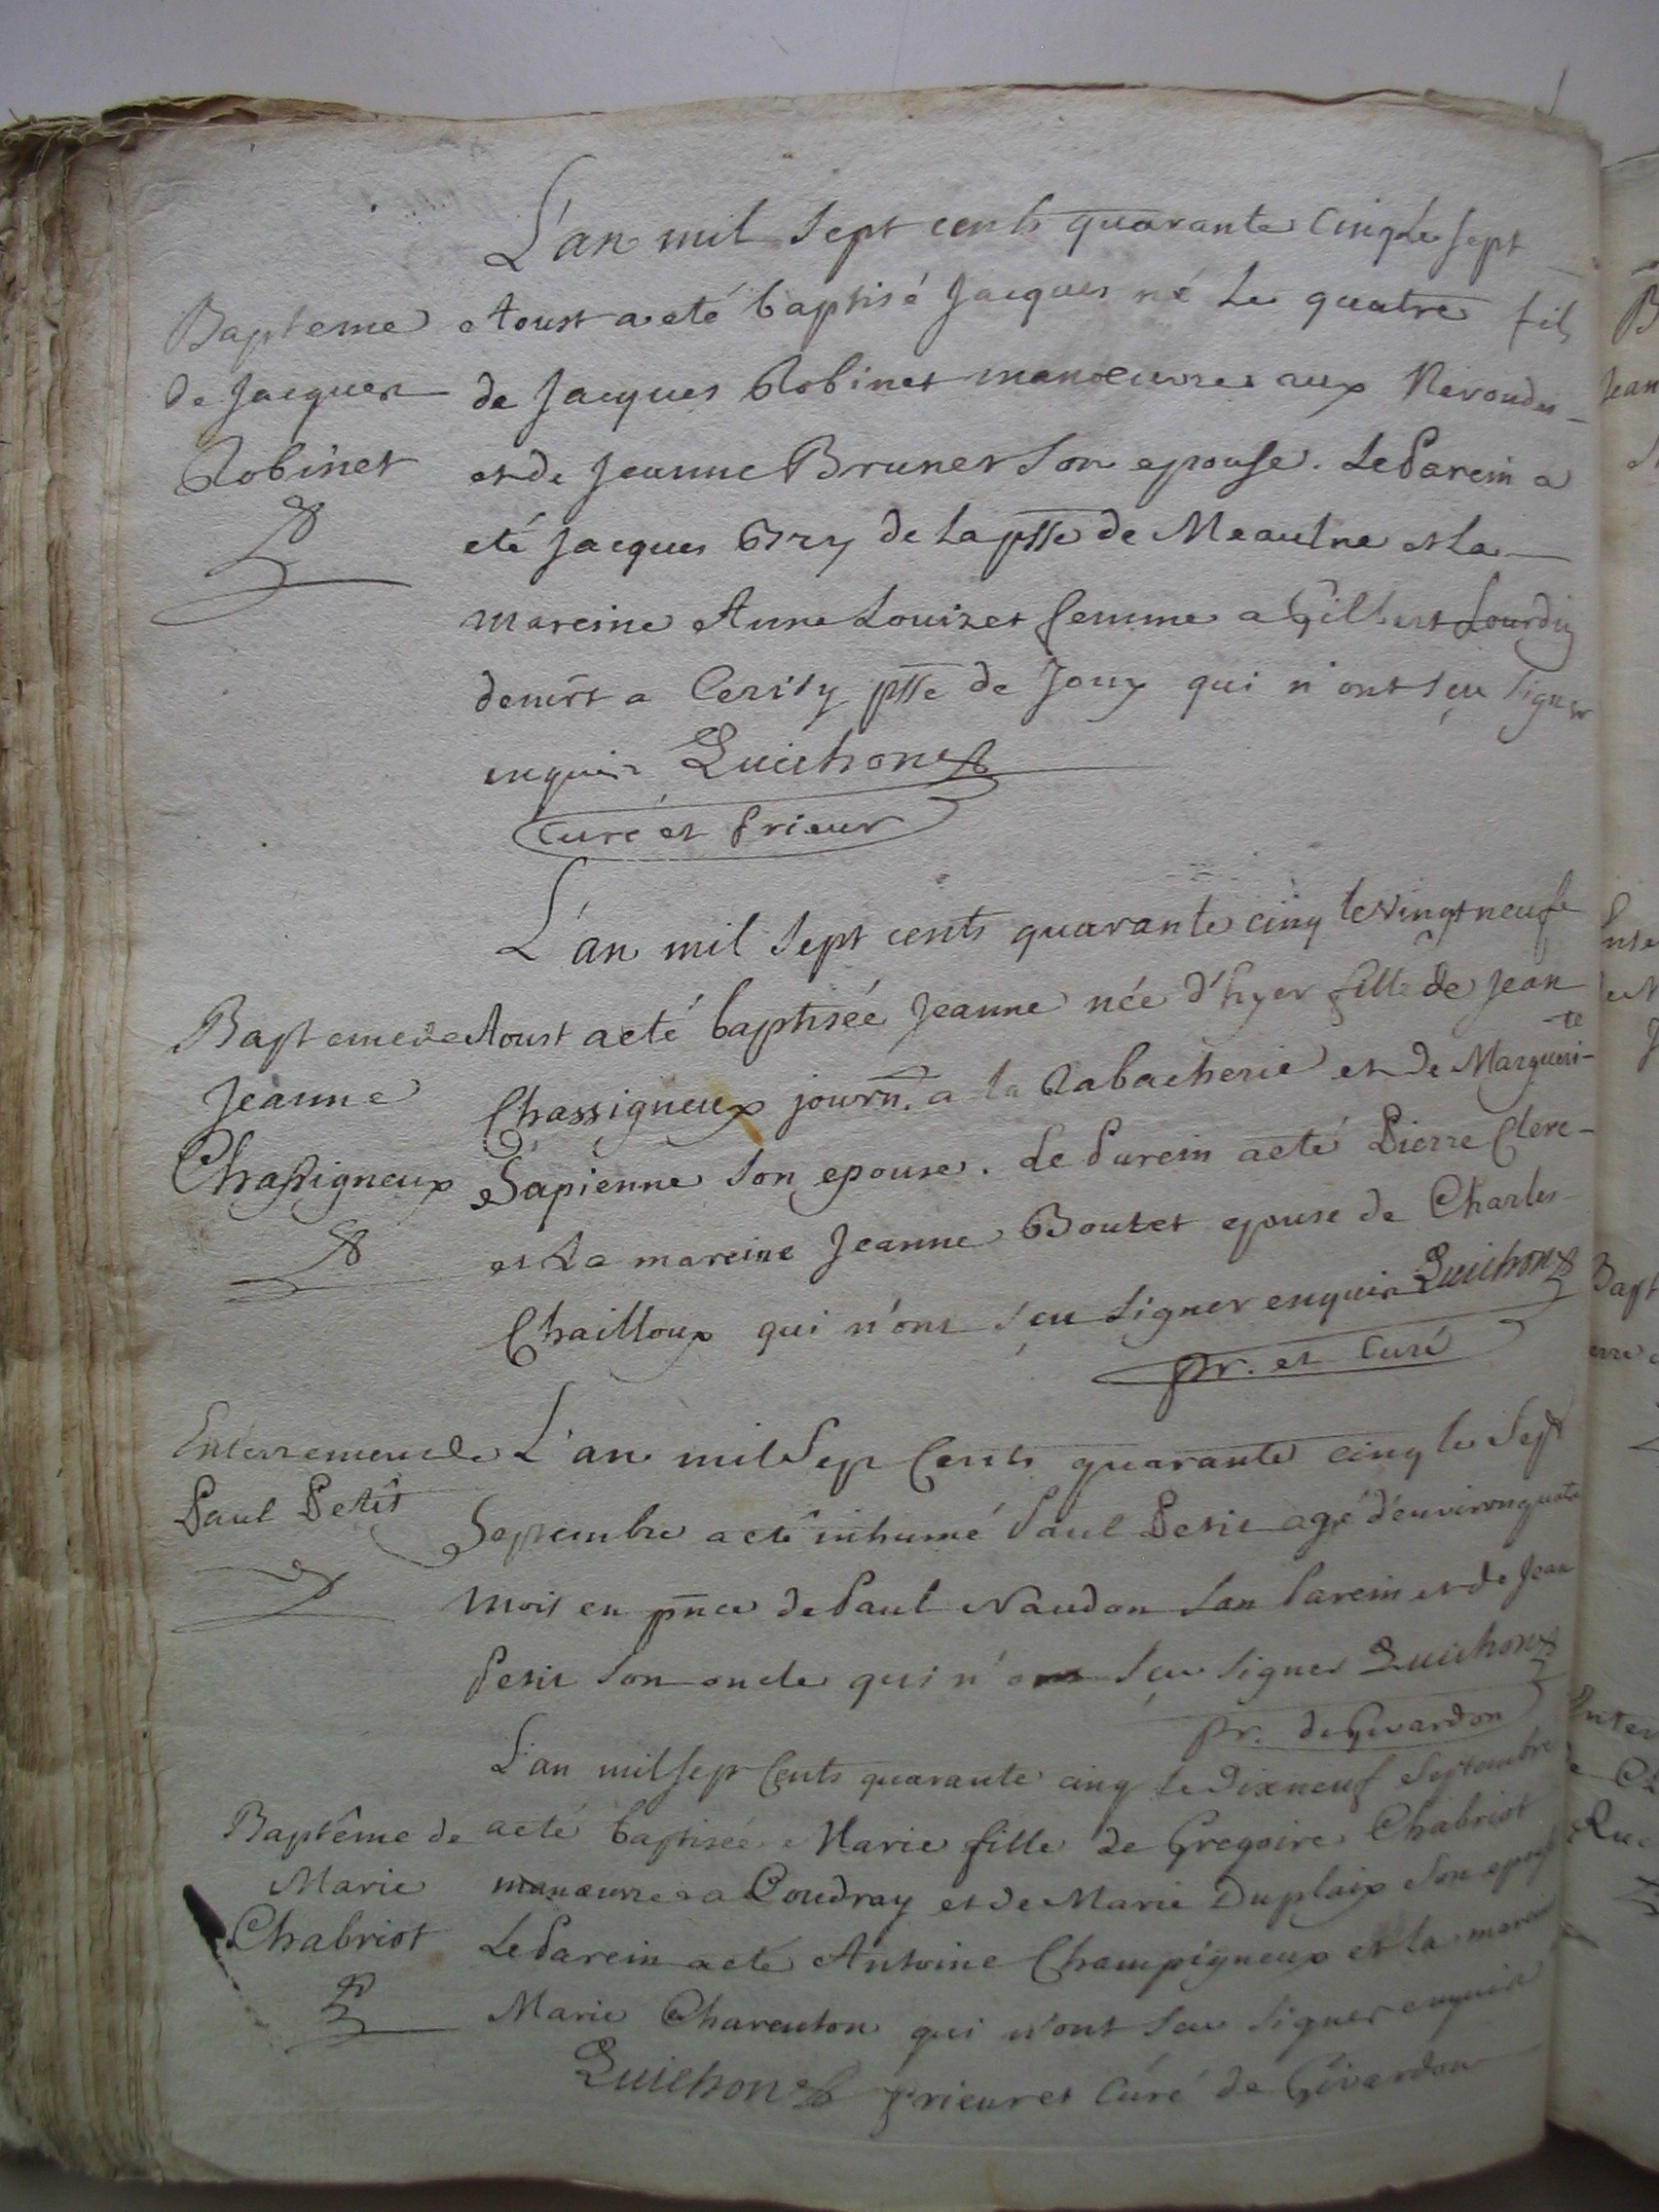 L'an mil sept cents quarante cinq le sept
Bapteme
de Jacques
Robinet
Aoust a eté baptisé Jacques né le quatre fils
de Jacques Robinet manoeuvre aux Nevoudes
et de Jeanne Brunet son epouse. Le Parein a
eté Jacques Ory de la psse de Meaulne et la
mareine Anne Louizet femme a Gilbert Lourdiy
demrt a Cerisy psse de Jouy qui n'ont sçu signer
enquis Guichon
Curé et Prieur
L'an mil sept cents quarante cinq le vingt neufe
Bapteme de
Jeanne
Chassigneux
Aoust a eté baptisée Jeanne née d'hyer fille de Jean
Chassigneux journ. a la Rabacherie et de Margueri-te
Sapienne son epouse. Le Parein a eté Pierre Clerc
et La mareine Jeanne Boutet epouse de Charles
Chailloux qui n'ont sçu signer enquis Guichon
pr. et Curé
Enterrement de
Paul Petit
L'an mil Sep Cents quarante cinq le Sept
Septembre a eté inhumé Paul Petit agé d'environ quatre
mois en pnce de Paul Naudon son Parein et de Jean
Petit son oncle qui n'ont sçu signer Guichon
pr. de Givardon
L'an mil sept Cents quarante cinq le dixneuf Septembre
Baptême de
Marie
Chabriot
a eté baptisée Marie fille de Gregoire Chabriot
manoeuvre a Coudray et de Marie Duplaix son epouse
Le Parein a eté Antoine Champigneux et la mareine
Marie Charenton qui n'ont sçu signer enquis
Guichon prieur et Curé de Givardon